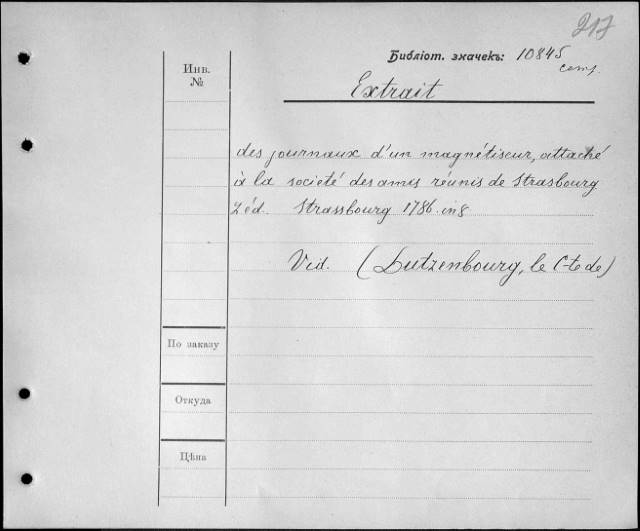 217
Библіот. значекъ: 10845
comp.
Инв.
№
Extrait
des journaux d'un magnétiseur, attaché
à la societé des amis réunis de Strasbourg
2 éd. Strassbourg 1786. in 8
Vid. (Lutzenbourg, le C-te de)
По заказу
Откуда
Цѣна